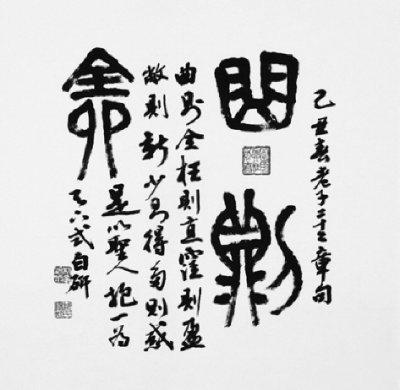 己丑春老子二十二章句
曲則
曲則全枉則直窪則盈
敝則新少則得多則惑
是以聖人抱一為
全
天下式自研